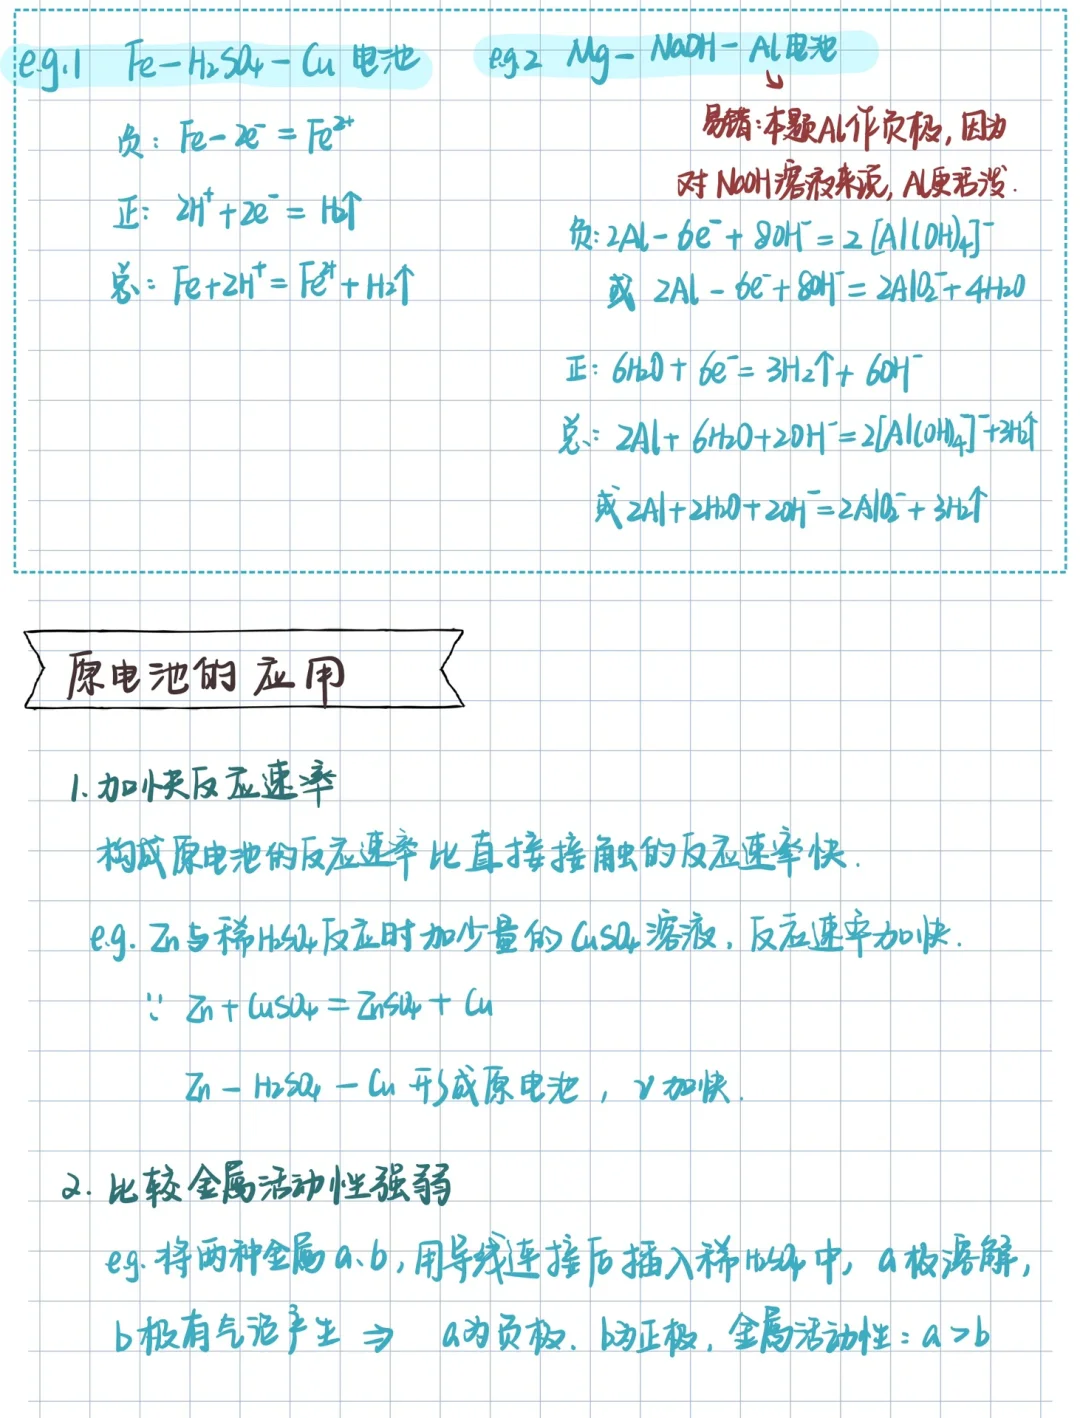 e.g.1 Fe-H₂SO₄-Cu 电池
负: Fe-2e⁻=Fe²⁺
正: 2H⁺+2e⁻=H₂↑
总: Fe+2H⁺=Fe²⁺+H₂↑
e.g.2 Mg-NaOH-Al电池
↘
易错:本题Al作负极,因为
对NaOH溶液来说,Al更活泼.
负:2Al-6e⁻+8OH⁻=2[Al(OH)₄]⁻
或 2Al-6e⁻+8OH⁻=2AlO₂⁻+4H₂O
正: 6H₂O+6e⁻=3H₂↑+6OH⁻
总: 2Al+6H₂O+2OH⁻=2[Al(OH)₄]⁻+3H₂↑
或2Al+2H₂O+2OH⁻=2AlO₂⁻+3H₂↑
原电池的应用
1.加快反应速率
构成原电池的反应速率比直接接触的反应速率快.
e.g. Zn与稀H₂SO₄反应时加少量的CuSO₄溶液,反应速率加快.
∵ Zn+CuSO₄=ZnSO₄+Cu
Zn-H₂SO₄-Cu 形成原电池,v加快.
2.比较金属活动性强弱
eg.将两种金属a、b,用导线连接后插入稀H₂SO₄中,a极溶解,
b极有气泡产生⇒ a为负极.b为正极,金属活动性:a>b